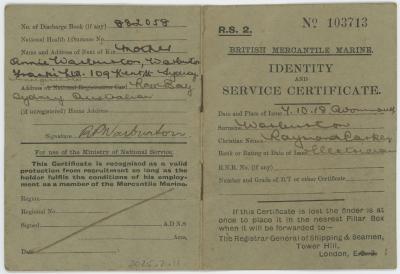 No. of Discharge Book (if any) 882058
National Health Insurance No.
Name and Address of Next of Kin Mother
Annie Warburton, Warburton
109 Kent St Sydney
Address on National Registration Card Rose Bay
Sydney Australian
(if unregistered) Home Address
Signature RPWarburton
For use of the Ministry of National Service.
This Certificate is recognised as a valid
protection from recruitment so long as the
holder fulfils the conditions of his employ-
ment as a member of the Mercantile Marine.
Region
Regional No.
Signed A D N S
Area,
Date
2025.7.11
R.S. 2. No 103713
BRITISH MERCANTILE MARINE.
IDENTITY
AND
SERVICE CERTIFICATE.
Date and Place of Issue 7.10.18 Avonmouth
Surname Warburton
Christian Names Raymond Parker
Rank or Rating at Date of Issue Electrician
R.N.R. No. (if any)
Number and Grade of B.T or other Certificate
If this Certificate is lost the finder is at
once to place it in the nearest Pillar Box
when it will be forwarded to:-
The Registrar General of Shipping & Seamen,
Tower Hill,
London, E.C. 3.